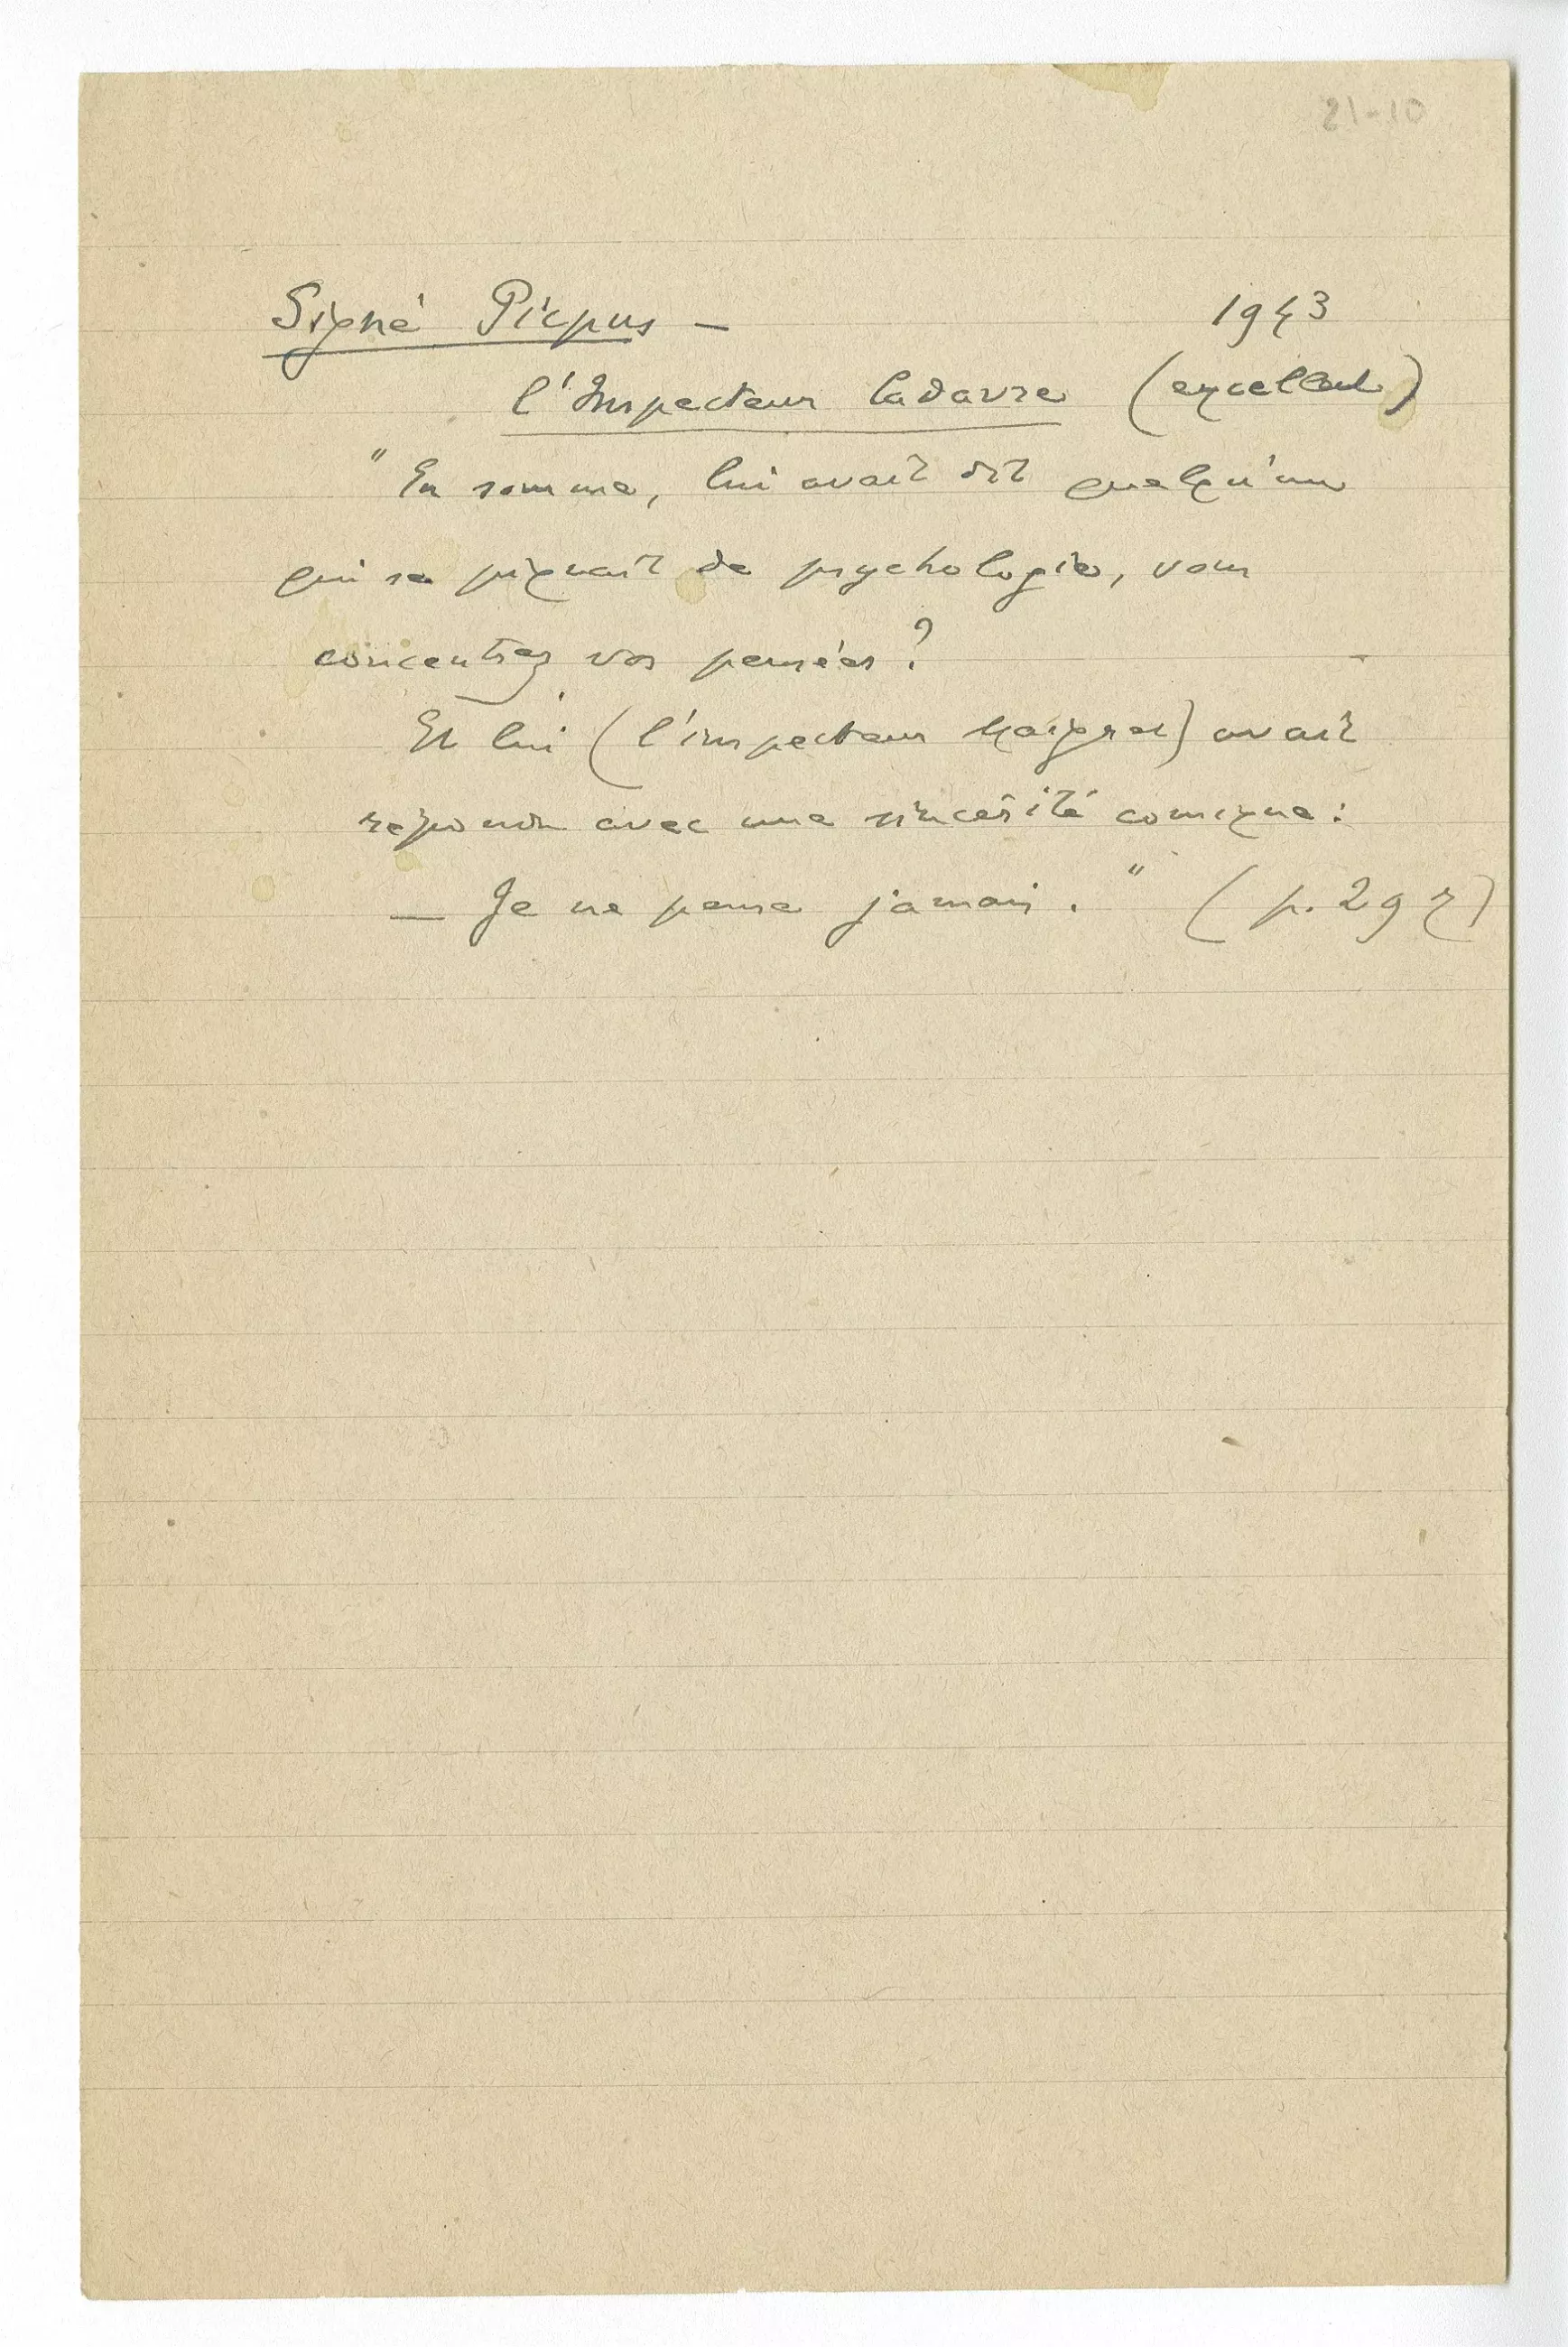 21-10
Signé Picpus — 1943
l'Inspecteur Cadavre (excellent)
" En somme, lui avait dit quelqu'un
qui se piquait de psychologie, vous
concentrez vos pensées ?
Et lui (l'inspecteur Maigret) avait
répondu avec une sincérité comique :
— Je ne pense jamais . " (p. 297)